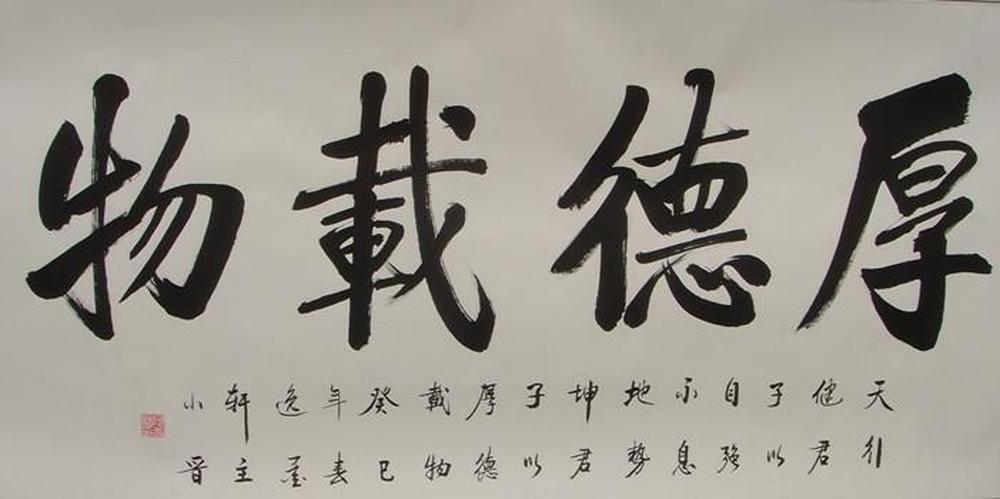 厚德載物
天行
健君
子以
自强
不息
地勢
坤君
子以
厚德
載物
癸巳
年春
逸墨
軒主
小晋